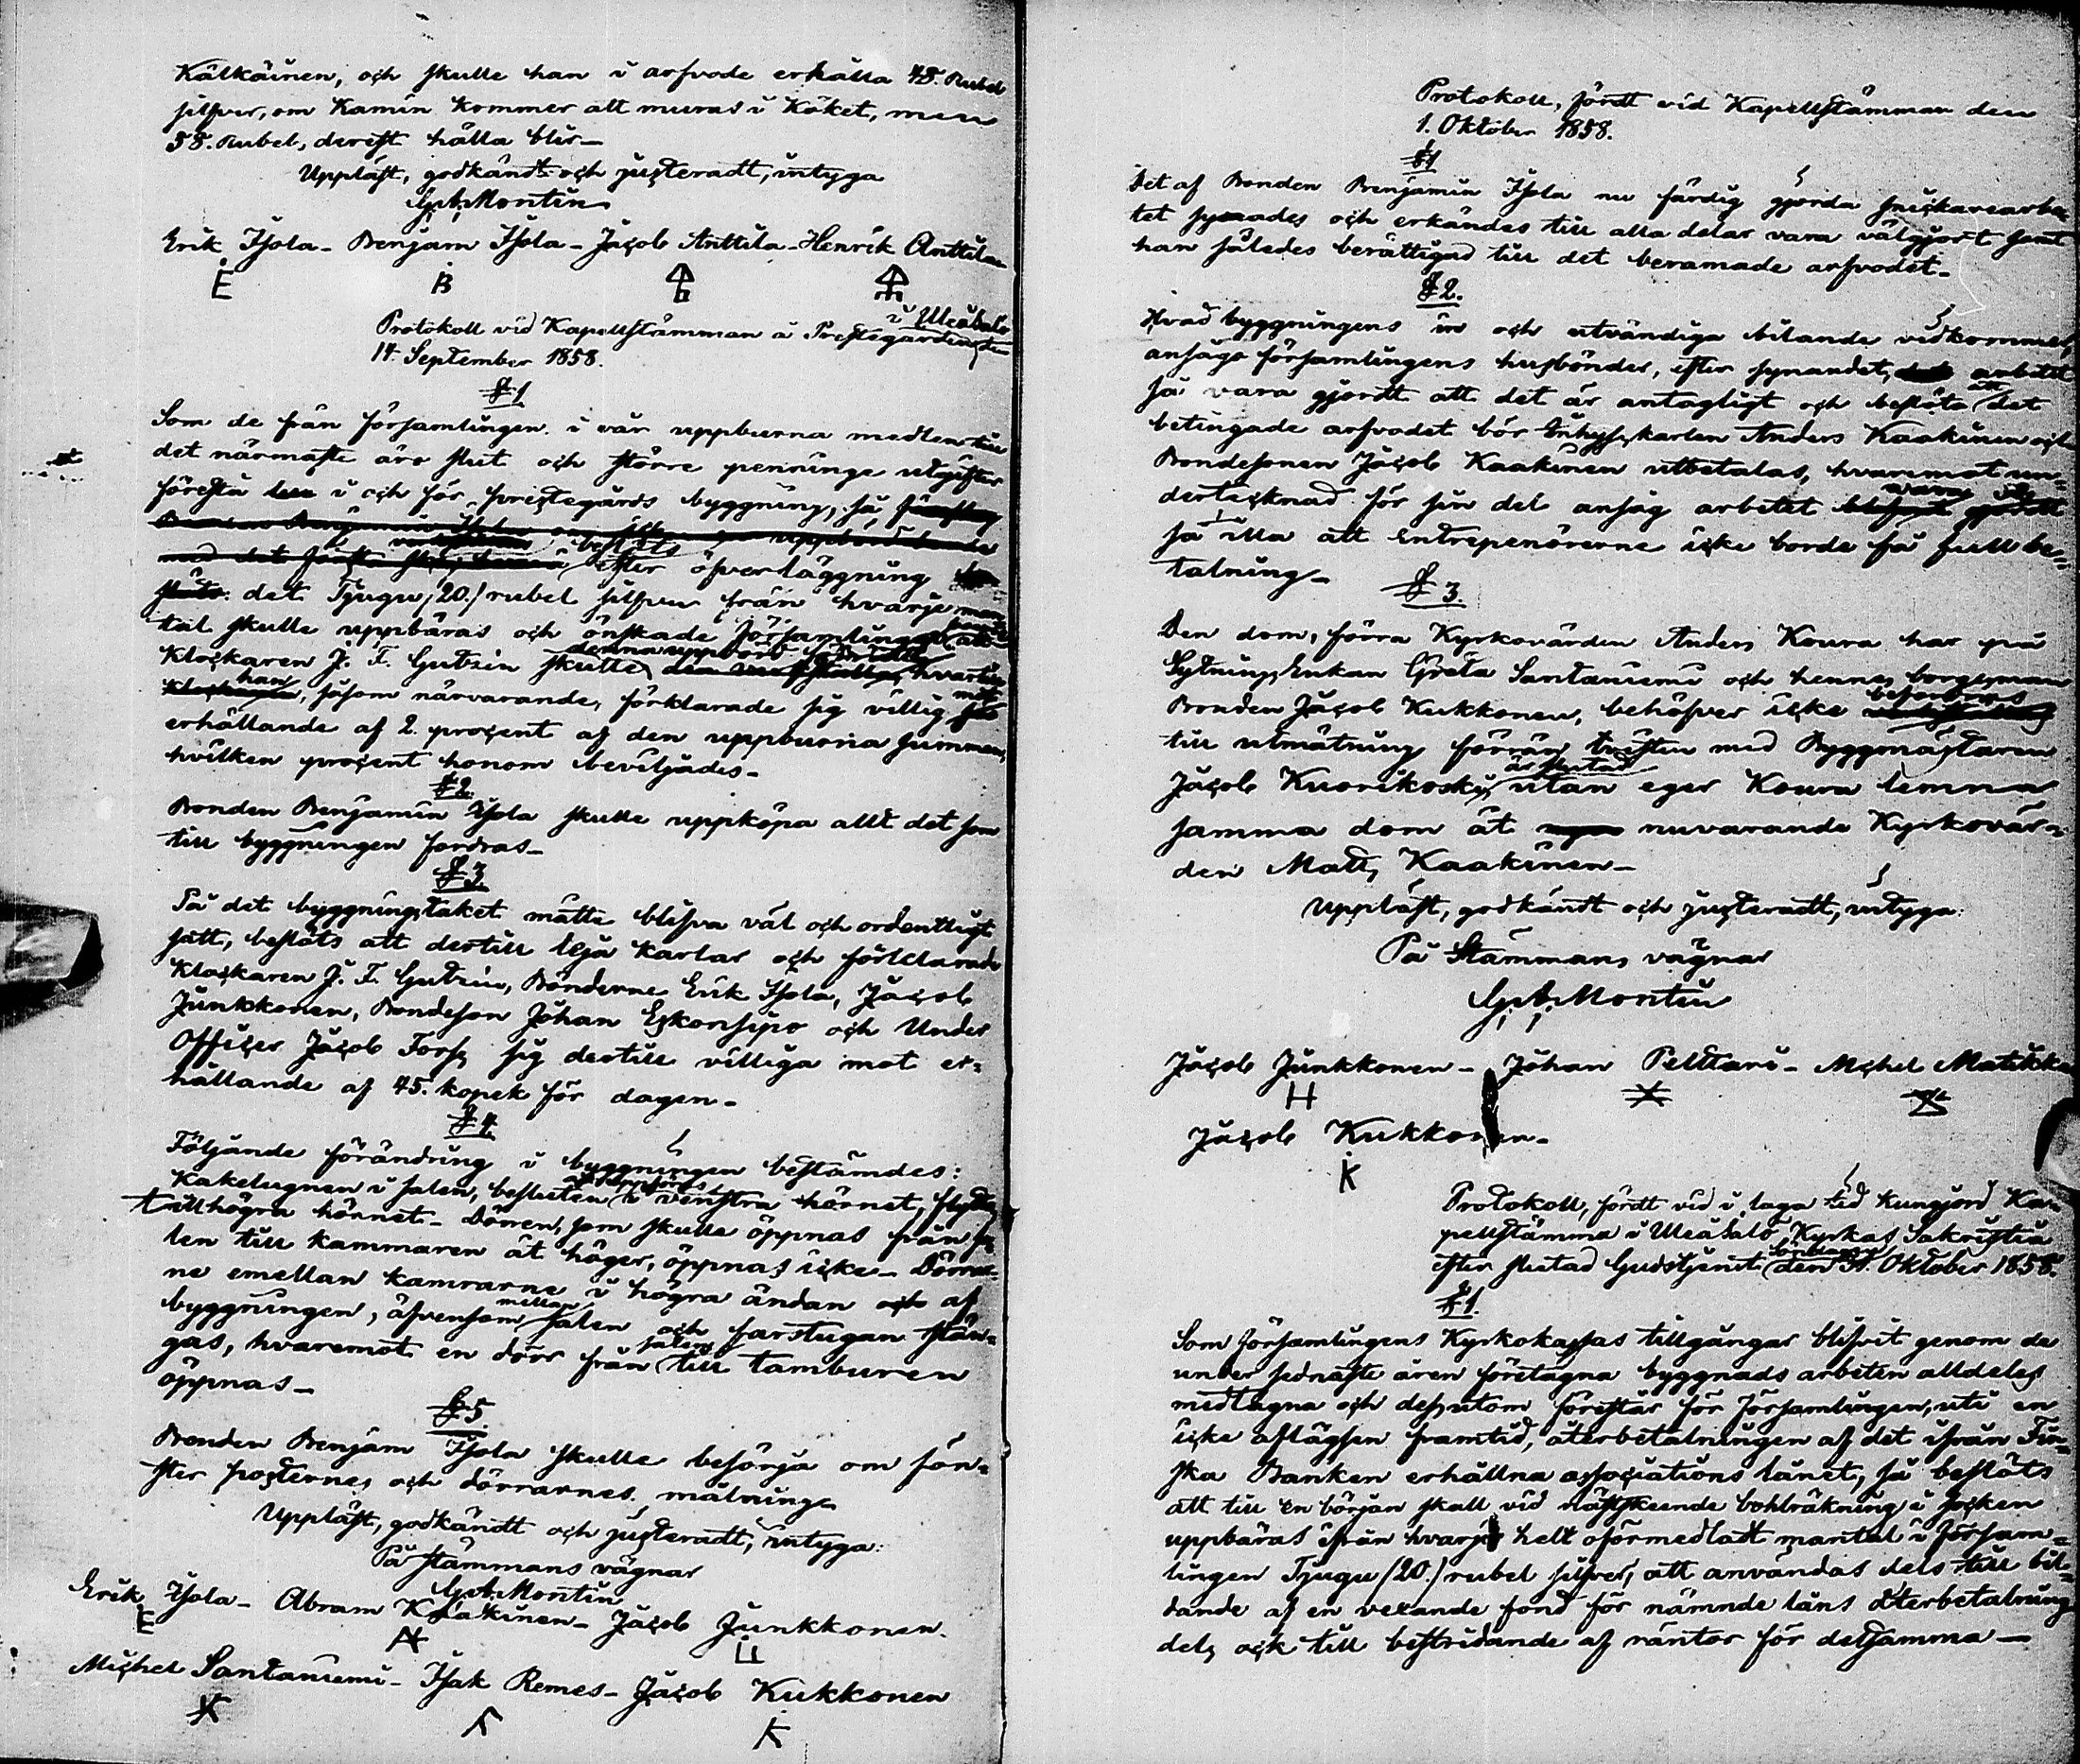 Kälkäinen, och skulle han i arfvode erhålla 48. Rubel
silfver, om Kamin kommer att muras i Köket, men
58. Rubel, derest hälla blir—
Uppläst, godkändt och justeradt, intyga
G. A. Montin
Erik Isola — Benjam Isola — Jacob Anttila — Henrik Anttila
E B
Protokoll vid Kapellstämman å Prestegården i Uleåsalo den
14. September 1858.
§ 1
Som de från församlingen i vår uppburna medlen till
det närmaste äro slut och större penninge utgifter
förestå i och för prestegårds byggning, så
beslöts
efter öfverläggning
det Tjugu /20./ rubel silfver från hvarje man=
tal skulle uppbäras och önskade församlingen att
Klockaren J. F. Gutzén skulle denna uppbörd hvartill
han, såsom närvarande, förklarade sig villig mot
erhållande af 2. procent af den uppburna summan,
hvilken procent honom beviljades—
§ 2.
Bonden Benjamin Isola skulle uppköpa allt det som
till byggningen fordras—
§ 3.
På det byggningstaket måtte blifva väl och ordentligt
satt, beslöts att dertill leja karlar och förklarade
Klockaren J. F. Gutzén, Bönderne Erik Isola, Jacob
Junkkonen, Bondeson Johan Eskonsipo och Under
Officer Jacob Forss sig dertill villiga mot er=
hållande af 45. kopek för dagen—
§ 4
Följande förändring i byggningen bestämdes:
Kakelugnen i salen, besluten att uppföras i venstra hörnet, flyttas
till högra hörnet— Dörren, som skulle öppnas från sa
len till kammaren åt höger, öppnas icke— Dörrar=
ne emellan kamrarne i högra ändan och af
byggningen, äfvensom mellan salen och farstugan stän=
gas, hvaremot en dörr från salen till tamburen
öppnas—
§ 5.
Bonden Benjam Isola skulle besörja om fön=
ster posternes och dörrarnes målning—
Uppläst, godkändt och justeradt, intyga:
På stämmans vägnar
G. A. Montin
Erik Isola — Abram Kaakinen — Jacob Junkkonen.
E
Michel Santaniemi — Isak Remes — Jacob Kukkonen
K
Protokoll, fördt vid Kapellstämman den
1. Oktober 1858.
§ 1
Det af Bonden Benjamin Isola nu färdig gjorda snickarearbe
tet synades och erkändes till alla delar vara välgjort samt
han således berättigad till det beramade arfvodet—
§ 2.
Hvad byggningens in och utvändiga bilande vidkommer,
ansågo församlingens husbönder, efter synandet, arbetet
så vara gjordt att det är antagligt och beslöto att det
betingade arfvodet bör Inhyses karlen Anders Kaakinen och
Bondesonen Jacob Kaakinen utbetalas, hvaremot un=
dertecknad för sin del ansåg arbetet vara
så illa att Entrepenörerne icke borde få full be=
talning—
§ 3.
Den dom, förra Kyrkovärden Anders Koura har på
Sytnings Enkan Greta Santaniemi och hennes borgesman
Bonden Jacob Kukkonen, behöfver icke befordras
till utmätning förrän tvisten med Byggmästaren
Jacob Kuorikoski är slutad, utan eger Koura lemna
samma dom åt nuvarande Kyrkovär=
den Matts Kaakinen—
Uppläst, godkändt och justeradt, intyga:
På Stämmans vägnar
G. A. Montin
Jacob Junkkonen — Johan Pelttari — Michel Matikka
H
Jacob Kukkonen—
K
Protokoll, fördt vid i laga tid kungjord Ka=
pellstämma i Uleåsalo Kyrkas Sakristia
efter slutad Gudstjenst söndagen den 31. Oktober 1858.
§ 1.
Som församlingens Kyrkokassas tillgångar blifvit genom de
under sednaste åren företagna byggnads arbeten alldeles
medtagna och dessutom förestår för församlingen, uti en
icke aflägsen framtid, återbetalningen af det ifrån Fin=
ska Banken erhållna associations lånet, så beslöts
att till en början skall vid nästskeende bohlräkning i socken
uppbäras ifrån hvarje helt oförmedladt mantal i församl=
lingen Tjugu /20./ rubel silfver, att användas dels till bil=
dande af en vexande fond för nämnde låns återbetalning
dels ock till bestridande af räntor för detsamma—